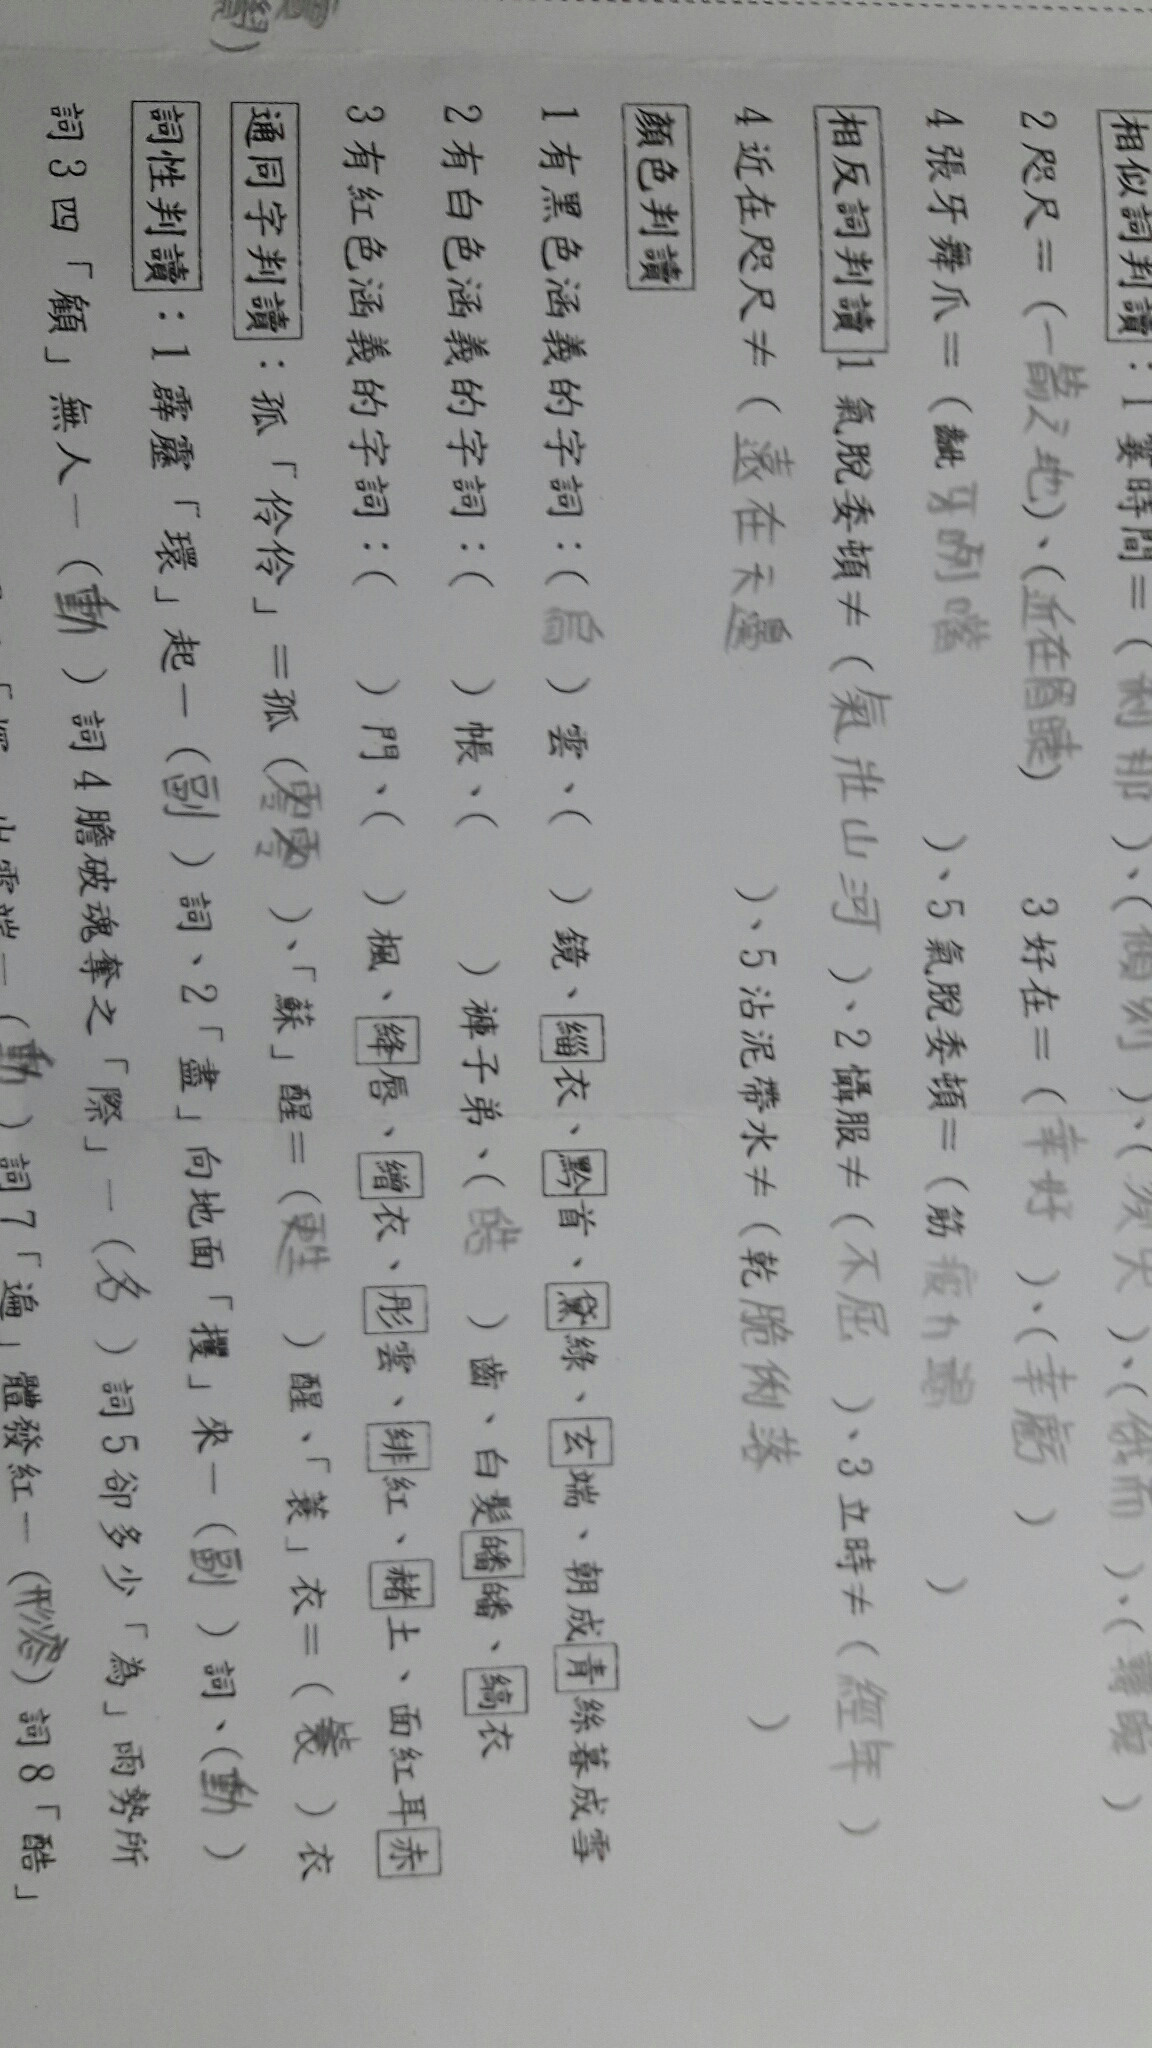 相似詞判讀：1霎時間＝（剎那）、（傾刻）、（須臾）、（俄而）、（
2咫尺＝（一箭之地）、（近在眉睫） 3好在＝（幸好）、（幸虧）
4張牙舞爪＝（齜牙咧嘴）、5氣脫委頓＝（筋疲力竭）
相反詞判讀1氣脫委頓≠（氣壯山河）、2懾服≠（不屈）、3立時≠（經年）
4近在咫尺≠（遠在天邊）、5沾泥帶水≠（乾脆俐落）
顏色判讀
1有黑色涵義的字詞：（烏）雲、（ ）鏡、緇衣、黔首、黛綠、玄端、朝成青絲暮成雪
2有白色涵義的字詞：（ ）帳、（ ）褲子弟、（皓）齒、白髮皤皤、縞衣
3有紅色涵義的字詞：（ ）門、（ ）楓、絳唇、繒衣、彤雲、緋紅、赭土、面紅耳赤
通同字判讀：孤「伶伶」＝孤（零零）、「蘇」醒＝（甦）醒、「蓑」衣＝（簑）衣
詞性判讀：1霹靂「環」起－（副）詞、2「盡」向地面「攫」來－（副）詞、（動）
詞3四「顧」無人－（動）詞4膽破魂奪之「際」－（名）詞5卻多少「為」雨勢所
出雲端－（動）詞7「遍」體發紅－（形容）詞8「酷」